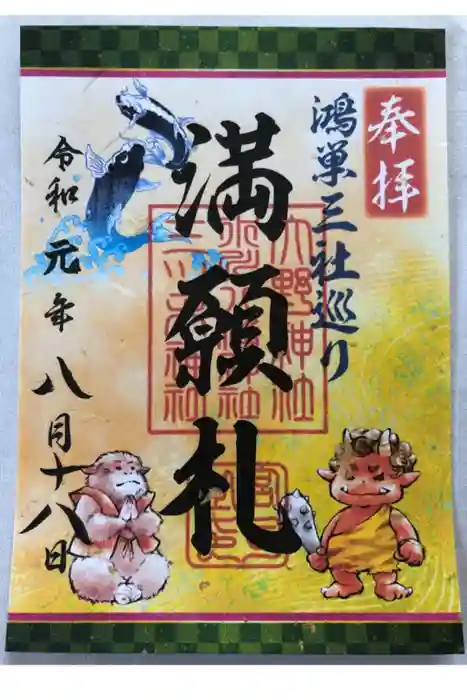 奉拝
鴻巣三社巡り
満願札
令和元年八月十八日